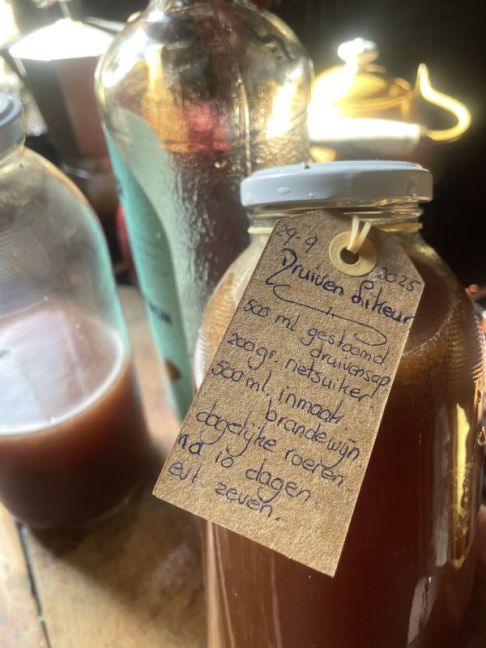 29-9 2025
Druiven Likeur
500 ml gestoomd
druivensap
200 gr. rietsuiker
500 ml inmaak
brandewijn.
dagelijks roeren.
na 10 dagen
evt zeven.